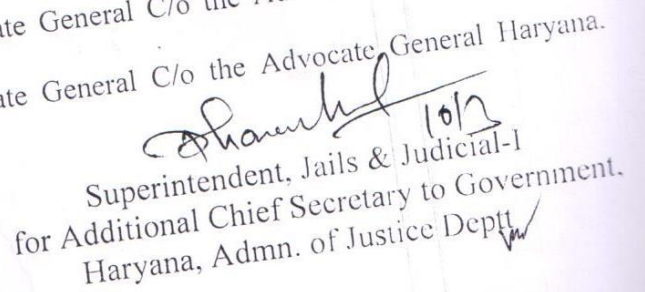 ate General C/o the
ate General C/o the Advocate General Haryana.
10/2
Superintendent, Jails & Judicial-I
for Additional Chief Secretary to Government,
Haryana, Admn. of Justice Deptt